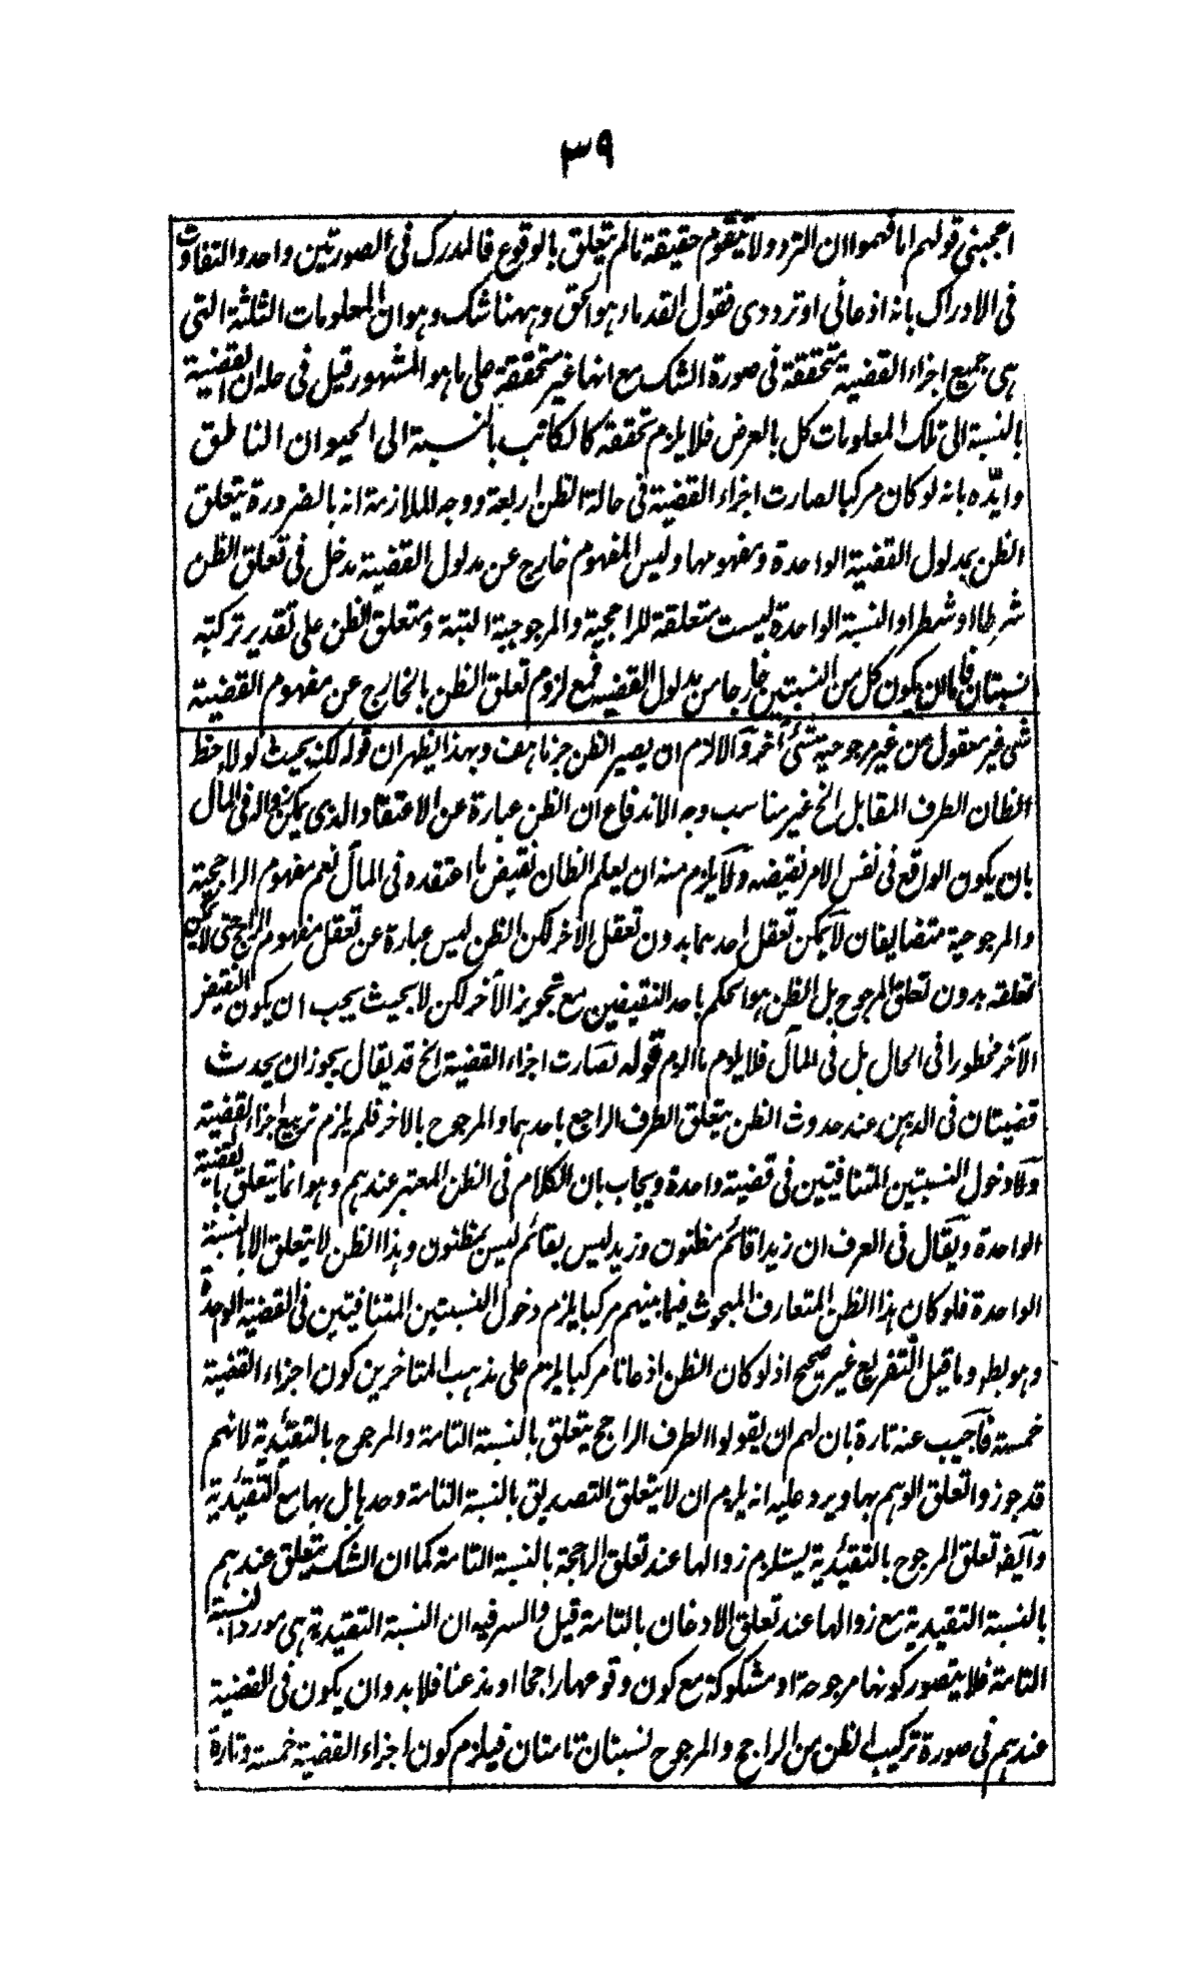 ٣٩
اعجبنی قولہم اما فہموا ان التردد ولا تتقوم حقیقۃ مالم یتعلق بالوقوع فالمدرک فی الصورتین واحد والتفاوت
فی الادراک بانہ اذعانی او ترددی فقول القدماء ہو الحق وہہنا شک وہو ان المعلومات الثلثۃ التی
ہی جمیع اجزاء القضیۃ متحققۃ فی صورۃ الشک مع انہا غیر متحققۃ علی ما ہو المشہور قیل فی حلہ ان القضیۃ
بالنسبۃ الی تلک المعلومات کل بالعرض فلا یلزم تحققہ کالکاتب بالنسبۃ الی الحیوان الناطق
وایّدہ بانہ لو کان مرکبا لصارت اجزاء القضیۃ فی حالۃ الظن اربعۃ ووجہ الملازمۃ انہ بالضرورۃ یتعلق
الظن بمدلول القضیۃ الواحدۃ ومفہومہا ولیس المفہوم خارج عن مدلول القضیۃ مدخل فی تعلق الظن
شرطا او شطرا والنسبۃ الواحدۃ لیست متعلقۃ للراجحیۃ والمرجوحیۃ البتۃ ومتعلق الظن علی تقدیر ترکبہ
نسبتان فاما ان یکون کل من النسبتین خارجا من مدلول القضیۃ فمع لزوم تعلق الظن بالخارج عن مفہوم القضیۃ
شی غیر معقول من غیر مرجوحیۃ شئ آخر والا لزم ان یصیر الظن جزما ہف وبہذا یظہر ان قولہ لکنہ بحیث لو لاحظ
الظان الطرف المقابل الخ غیر مناسب وجہ الاندفاع ان الظن عبارۃ عن الاعتقاد الذی یمکن زوالہ فی المآل
بان یکون الواقع فی نفس الامر نقیضہ ولا یلزم منہ ان یعلم الظان نقیض ما اعتقدہ فی المآل نعم مفہوم الراجحیۃ
والمرجوحیۃ متضایفان لا یمکن تعقل احدہما بدون تعقل الآخر لکن الظن لیس عبارۃ عن تعقل مفہوم الراجح حتی لا یمکن
تعلقہ بدون تعلق المرجوح بل الظن ہو الحکم باحد النقیضین مع تجویز الآخر لکن لا بحیث یجب ان یکون النقیض
الآخر مخطورا فی الحال بل فی المآل فلا یلزم ما الزم قولہ لصارت اجزاء القضیۃ الخ قد یقال یجوز ان یحدث
قضیتان فی الذہن عند حدوث الظن یتعلق الطرف الراجح باحدہما والمرجوح بالاخر فلم یلزم تربیع اجزاء القضیۃ
ولا دخول النسبتین المتنافیتین فی قضیۃ واحدۃ ویجاب بان الکلام فی الظن المعتبر عندہم وہو انما یتعلق بالقضیۃ
الواحدۃ ویقال فی العرف ان زیدا قائم مظنون وزید لیس بقائم لیس بمظنون وہذا الظن لا یتعلق الا بالنسبۃ
الواحدۃ فلو کان ہذا الظن المتعارف المبحوث فیما بینہم مرکبا یلزم دخول النسبتین المتنافیتین فی القضیۃ الواحدۃ
وہو بط وما قیل التفریع غیر صحیح اذ لو کان الظن اذعانا مرکبا یلزم علی مذہب المتاخرین کون اجزاء القضیۃ
خمسۃ فاجیب عنہ تارۃ بان لہم ان یقولوا الطرف الراجح یتعلق بالنسبۃ التامۃ والمرجوح بالتقییدیۃ لانہم
قد جوزوا تعلق الوہم بہا ویرد علیہ انہ یلزم ان لا یتعلق التصدیق بالنسبۃ التامۃ وحدہا بل بہا مع التقییدیۃ
وایضا تعلق المرجوح بالتقییدیۃ یستلزم زوالہا عند تعلق الراجحۃ بالنسبۃ التامۃ کما ان الشک یتعلق عندہم
بالنسبۃ التقییدیۃ مع زوالہا عند تعلق الاذعان بالتامۃ قیل والسر فیہ ان النسبۃ التقییدیۃ ہی مورد النسبۃ
التامۃ فلا یتصور کونہا مرجوحۃ او مشکوکۃ مع کون وقوعہا راجحا او مذعنا فلا بد وان یکون فی القضیۃ
عندہم فی صورۃ ترکیب الظن من الراجح والمرجوح نسبتان تامتان فیلزم کون اجزاء القضیۃ خمسۃ وتارۃ